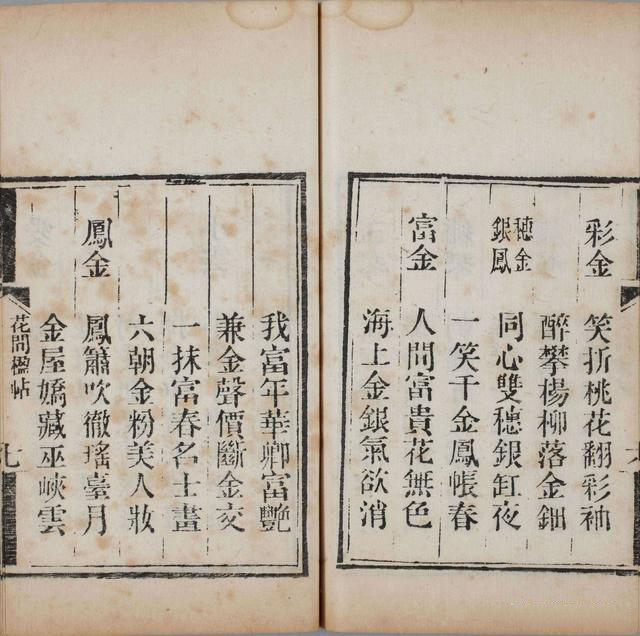 彩金
笑折桃花翻彩袖
醉攀楊柳落金鈿
穗金
銀鳳
同心雙穗銀缸夜
一笑千金鳳帳春
富金
人間富貴花無色
海上金銀氣欲消
我富年華卿富艷
兼金聲價斷金交
一抹富春名士畫
六朝金粉美人妝
鳳金
鳳簫吹徹瑤臺月
金屋嬌藏巫峽雲
花間楹帖
七